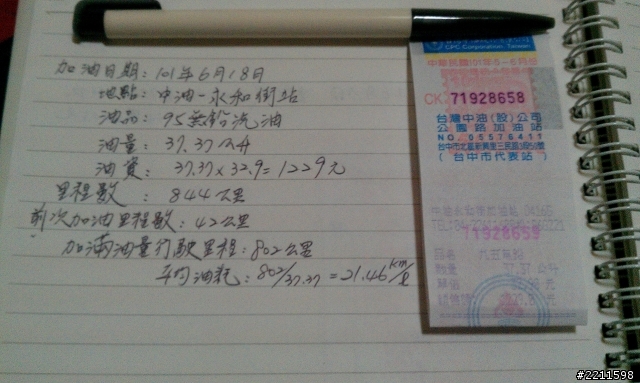 加油日期：101年6月18日
地點：中油-永和街站
油品：95無鉛汽油
油量：37.37公升
油資：37.37x32.9=1229元
里程數：844公里
前次加油里程數：42公里
加滿油量行駛里程：802公里
平均油耗：802/37.37=21.46km/ℓ
CPC Corporation, Taiwan
中華民國101年5-6月份
71928658
台灣中油(股)公司
公園路加油站
NO.05576411
(台中市代表站)
71928659
#2211598